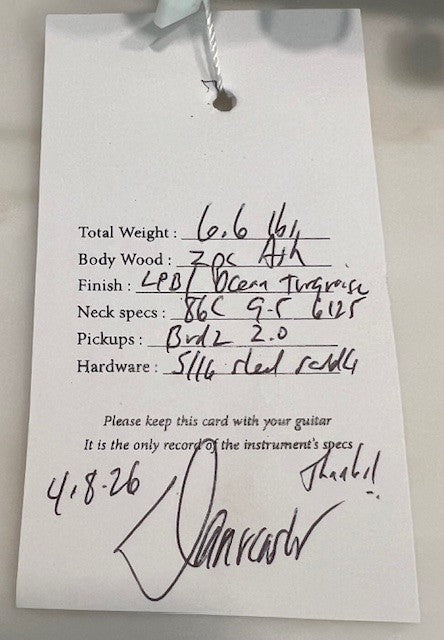 Total Weight : 6.6 lbs
Body Wood : 2pc Ash
Finish : LPB / Ocean Turquoise
Neck specs : 86C 9.5 6125
Pickups : Brdz 2.0
Hardware : 5/16 steel saddle
Please keep this card with your guitar
It is the only record of the instrument's specs
4.8.26 Thanks!
Danocaster